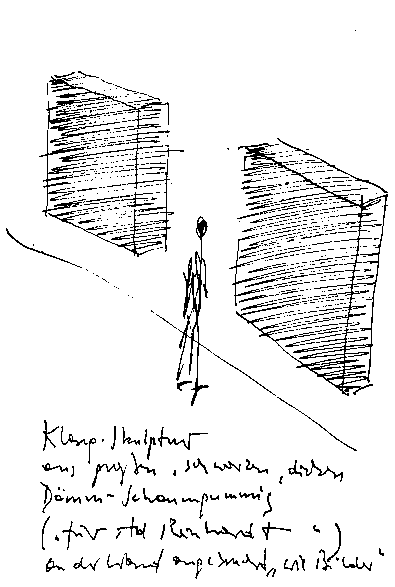 Klang-Skulptur
aus großen, schwarzen, dicken
Dämm-Schaumgummis
(„für Ad Reinhardt“)
an der Wand angebracht, wie Bilder"